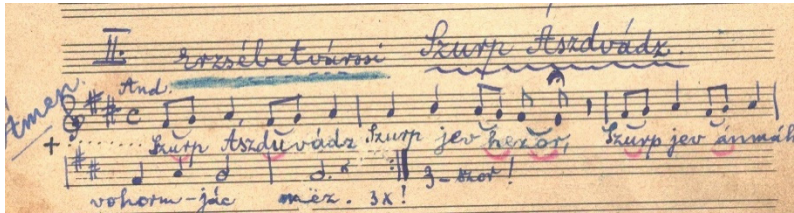 II. Erzsébetvárosi Szurp Ászdvádz.
Ámen.
And.
Szurp Ászduvádz Szurp jev hezor, Szurp jev ánmáh
vohorm-jác méz. 3x! 3-szor!